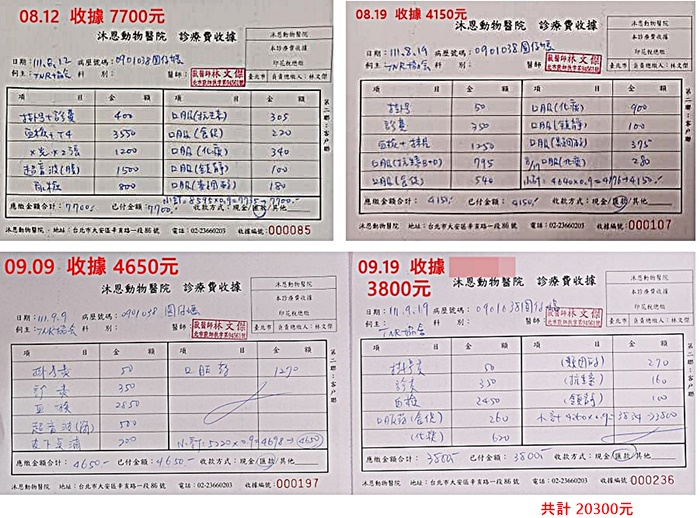 08.12 收據 7700元
沐恩動物醫院 診療費收據
沐恩動物醫院
本診療費收據
印花稅總繳
臺北市 負責總繳人:林文傑
日期:111.8.12 病歷號碼:0901038
飼主:TNR協會 科別: 醫師: 獸醫師林文傑
項目 金額 項目 金額
掛號+診費 400 口服(抗生素) 305
血檢+T4 3550 口服(食促) 220
X光×2張 1200 口服(化痰) 340
超音波(腹) 1500 口服(鎮靜) 100
800 180
小計=8595×0.9=7735→7700.-
應繳金額合計:7700.- 已付金額:7700.- 收款方式:現金/匯款/其他
第二聯:客戶聯
沐恩動物醫院 地址:台北市大安區辛亥路一段86號 電話:02-23660203 收據編號:000085
08.19 收據 4150元
沐恩動物醫院 診療費收據
沐恩動物醫院
本診療費收據
印花稅總繳
臺北市 負責總繳人:林文傑
日期:111.8.19 病歷號碼:0901038
飼主:TNR協會 科別: 醫師: 獸醫師林文傑
項目 金額 項目 金額
掛號 50 口服(化痰) 900
診費 350 口服(鎮靜) 100
1250 375
795 8/17 口服(化痰) 280
口服(食促) 540 小計=4640×0.9=4176→4150.-
應繳金額合計:4150.- 已付金額:4150.- 收款方式:現金/匯款/其他
第二聯:客戶聯
沐恩動物醫院 地址:台北市大安區辛亥路一段86號 電話:02-23660203 收據編號:000107
09.09 收據 4650元
沐恩動物醫院 診療費收據
沐恩動物醫院
本診療費收據
印花稅總繳
臺北市 負責總繳人:林文傑
日期:111.9.9 病歷號碼:0901038
飼主:TNR協會 科別: 醫師: 獸醫師林文傑
項目 金額 項目 金額
掛號費 50 口服藥 1270
診費 350
血檢 2850
超音波 500
200 小計=5220×0.9=4698→4650
應繳金額合計:4650.- 已付金額:4650.- 收款方式:現金/匯款/其他
第二聯:客戶聯
沐恩動物醫院 地址:台北市大安區辛亥路一段86號 電話:02-23660203 收據編號:000197
09.19 收據
3800元
沐恩動物醫院 診療費收據
沐恩動物醫院
本診療費收據
印花稅總繳
臺北市 負責總繳人:林文傑
日期:111.9.19 病歷號碼:0901038
飼主:TNR協會 科別: 醫師: 獸醫師林文傑
項目 金額 項目 金額
掛號費 50 270
診費 350 (抗生素) 160
血檢 2450 (鎮靜) 100
口服藥(食促) 260 小計 4260×0.9=3834→3800
(化痰) 620
應繳金額合計:3800.- 已付金額:3800.- 收款方式:現金/匯款/其他
第二聯:客戶聯
沐恩動物醫院 地址:台北市大安區辛亥路一段86號 電話:02-23660203 收據編號:000236
共計 20300元